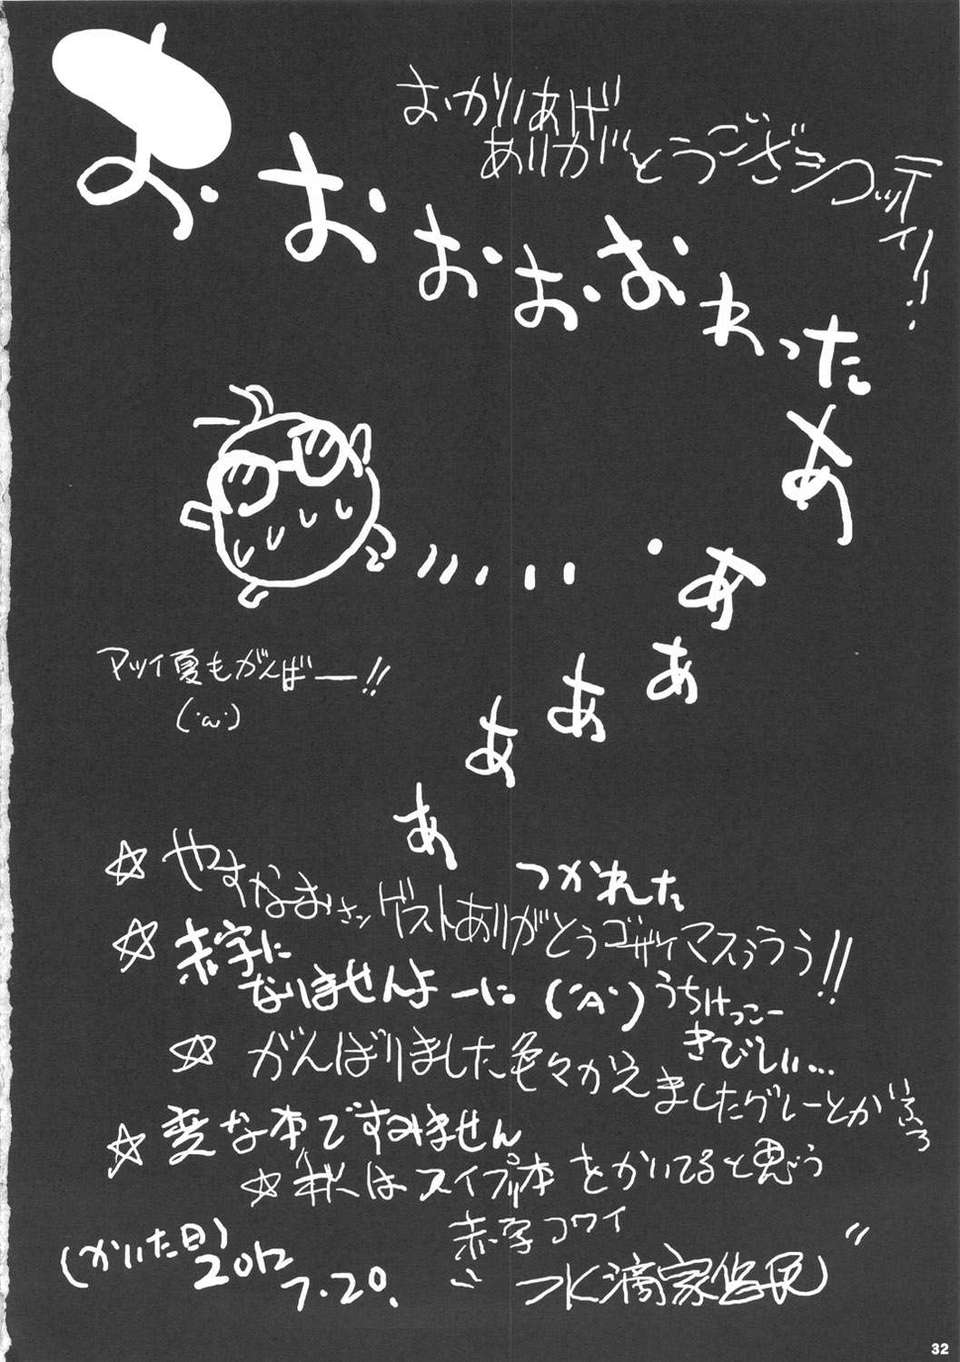 おかいあげ
ありがとうござシコッティ!!
お・お お お・おわった
あ
あ
ぁ
あ
あ
あ
アツイ夏もがんばー!!
つかれた
☆ やすなおさンゲストありがとうゴザイマスぅぅぅ!!
☆ 赤字に
なりませんよーに(´A`)うちけっこー
きびしい...
☆ がんばりました色々かえましたグレーとか
☆ 変な本ですみません
☆ 私はスイプリ本をかいてると思う
赤字コワイ
(かいた日)
2012
7.20.
32